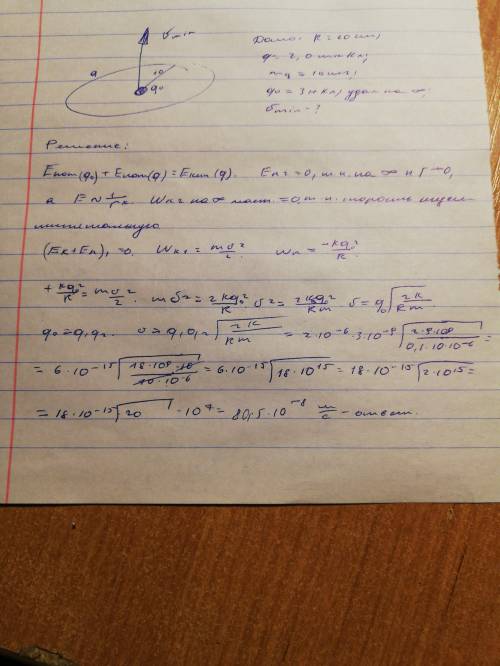 Дано: R = 10 см;
q = 2,0 мкКл;
m q = 10 мг;
q0 = 3 нКл; удал на ∞;
σ min - ?
σ min
q
10
q0
Решение:
Eпот(q0) + Eпот(q) = Eкин(q). Eп2 = 0, т.к. на ∞ и Г→0,
а E ~ 1/r к. Wк2 на ∞ част. = 0, т.к. скорость
(Eк+Eп)1 = 0. Wк1 = mσ²/2. Wп = -kq0²/R.
+kq0²/R = mσ²/2. mσ² = 2kq0²/R σ² = 2kq0²/Rm. σ = q0√(2k/Rm).
q0 = q1q2. σ = q1q2√(2k/Rm) = 2·10⁻⁶·3·10⁻⁹√(2·9·10⁹/0,1·10·10⁻⁶) =
= 6·10⁻¹⁵√(18·10⁹·10/10·10⁻⁶) = 6·10⁻¹⁵√(18·10¹⁵) = 18·10⁻¹⁵√(2·10¹⁵) =
= 18·10⁻¹⁵√20 ·10⁷ = 80,5·10⁻⁸ м/с - ответ.